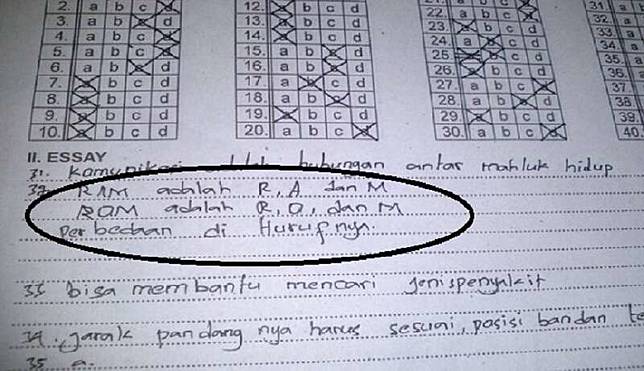 2. a b c d 12. b c d 22. a b c 31.
3. a b d 13. b c d 23. b c d 32.
4. a b c 14. b c d 24. a c d 33
5. a b c 15. a b d 25. c d 34
6. a b d 16. a b d 26. b c d 35
7. b c d 17. a c d 27. a b c 36
8. b c d 18. a b d 28. a b d 37
9. b c d 19. b c d 29. b c d 38
10. b c d 20. a b c 30. a b c 40
II. ESSAY
31. Komunikasi adalah hubungan antar mahluk hidup
32. RAM adalah R, A dan M
ROM adalah R, O, dan M
Perbedaan di Hurufnya.
33 bisa membantu mencari jenis penyakit
34. jarak pandang nya harus sesuai, posisi bandan te
35 a.